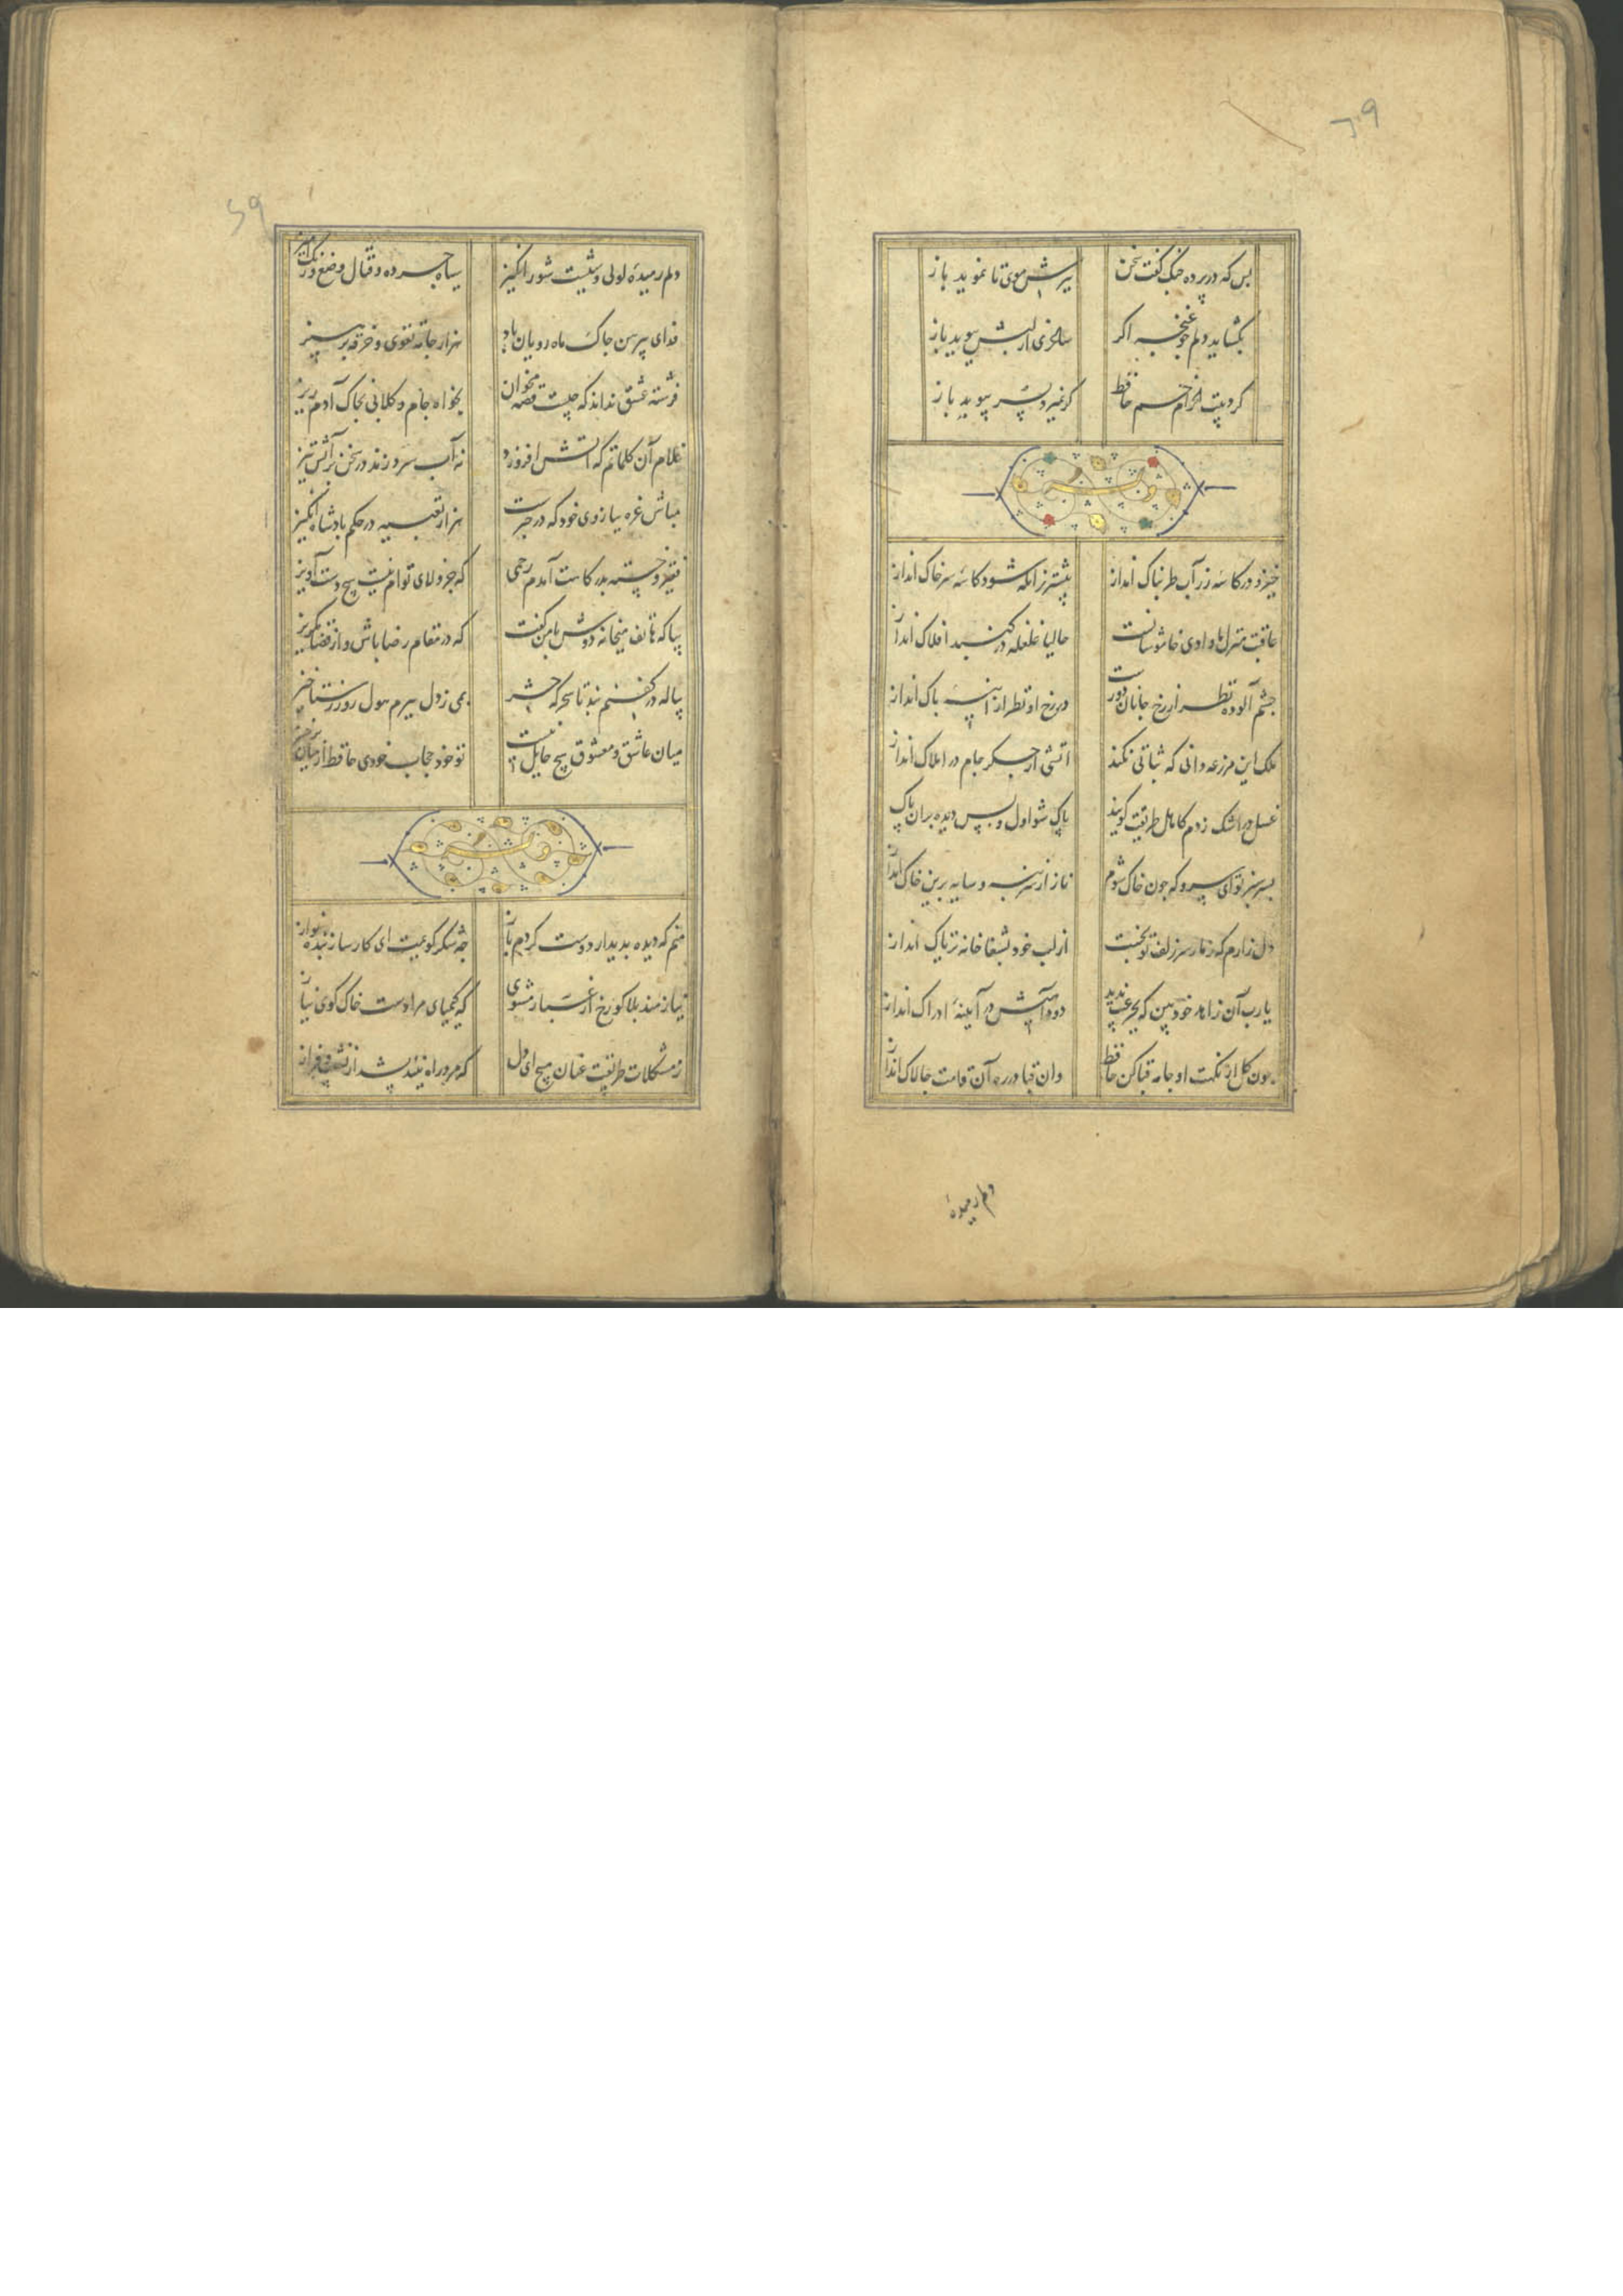 بس که در پرده چنگ گفت سخن
ببرش موی تا نموید باز
بگشاید دلم چو غنچه اگر
ساغری از لبش ببوید باز
گرد بیت الحرام خم حافظ
گر نمیرد بسر بپوید باز
وله
خیز و در کاسه زر آب طربناک انداز
پیشتر زانکه شود کاسه سر خاک انداز
عاقبت منزل ما وادی خاموشانست
حالیا غلغله در گنبد افلاک انداز
چشم آلوده نظر از رخ جانان دورست
در رخ او نظر از آینه پاک انداز
ملک این مزرعه دانی که ثباتی نکند
آتشی از جگر جام در املاک انداز
غسل در اشک زدم کاهل طریقت گویند
پاک شو اول و پس دیده بران پاک انداز
بسر سبز تو ای سرو که چون خاک شوم
ناز از سر بنه و سایه برین خاک انداز
دل زارم که ز مار سر زلف تو بخست
از لب خود بشفاخانه تریاک انداز
یا رب آن زاهد خودبین که بجز عیب ندید
دود آهیش در آیینهٔ ادراک انداز
چون گل از نکهت او جامه قبا کن حافظ
وان قبا در ره آن قامت چالاک انداز
دلم رمیدهٔ
دلم رمیدهٔ لولی وشیست شورانگیز
سیاه چرده و قتال وضع و رنگ آمیز
فدای پیرهن چاک ماه رویان باد
هزار جامه تقوی و خرقه پرهیز
فرشته عشق نداند که چیست قصه مخوان
بخواه جام و گلابی بخاک آدم ریز
غلام آن کلماتم که آتش افروزد
نه آب سرد زند در سخن بر آتش تیز
مباش غره ببازوی خود که در خبرست
هزار تعبیه در حکم پادشاه انگیز
فقیر و خسته بدرگاهت آمدم رحمی
که جز ولای توام نیست هیچ دست آویز
بیا که هاتف میخانه دوش با من گفت
که در مقام رضا باش و از قضا مگریز
پیاله در کفنم بند تا سحرگه حشر
بمی ز دل ببرم هول روز رستاخیز
میان عاشق و معشوق هیچ حایل نیست
تو خود حجاب خودی حافظ از میان برخیز
وله
منم که دیده بدیدار دوست کردم باز
چه شکر گویمت ای کارساز بنده نواز
نیازمند بلا گو رخ از غبار مشوی
که کیمیای مرادست خاک کوی نیاز
ز مشکلات طریقت عنان مپیچ ای دل
که مرد راه نیندیشد از نشیب و فراز